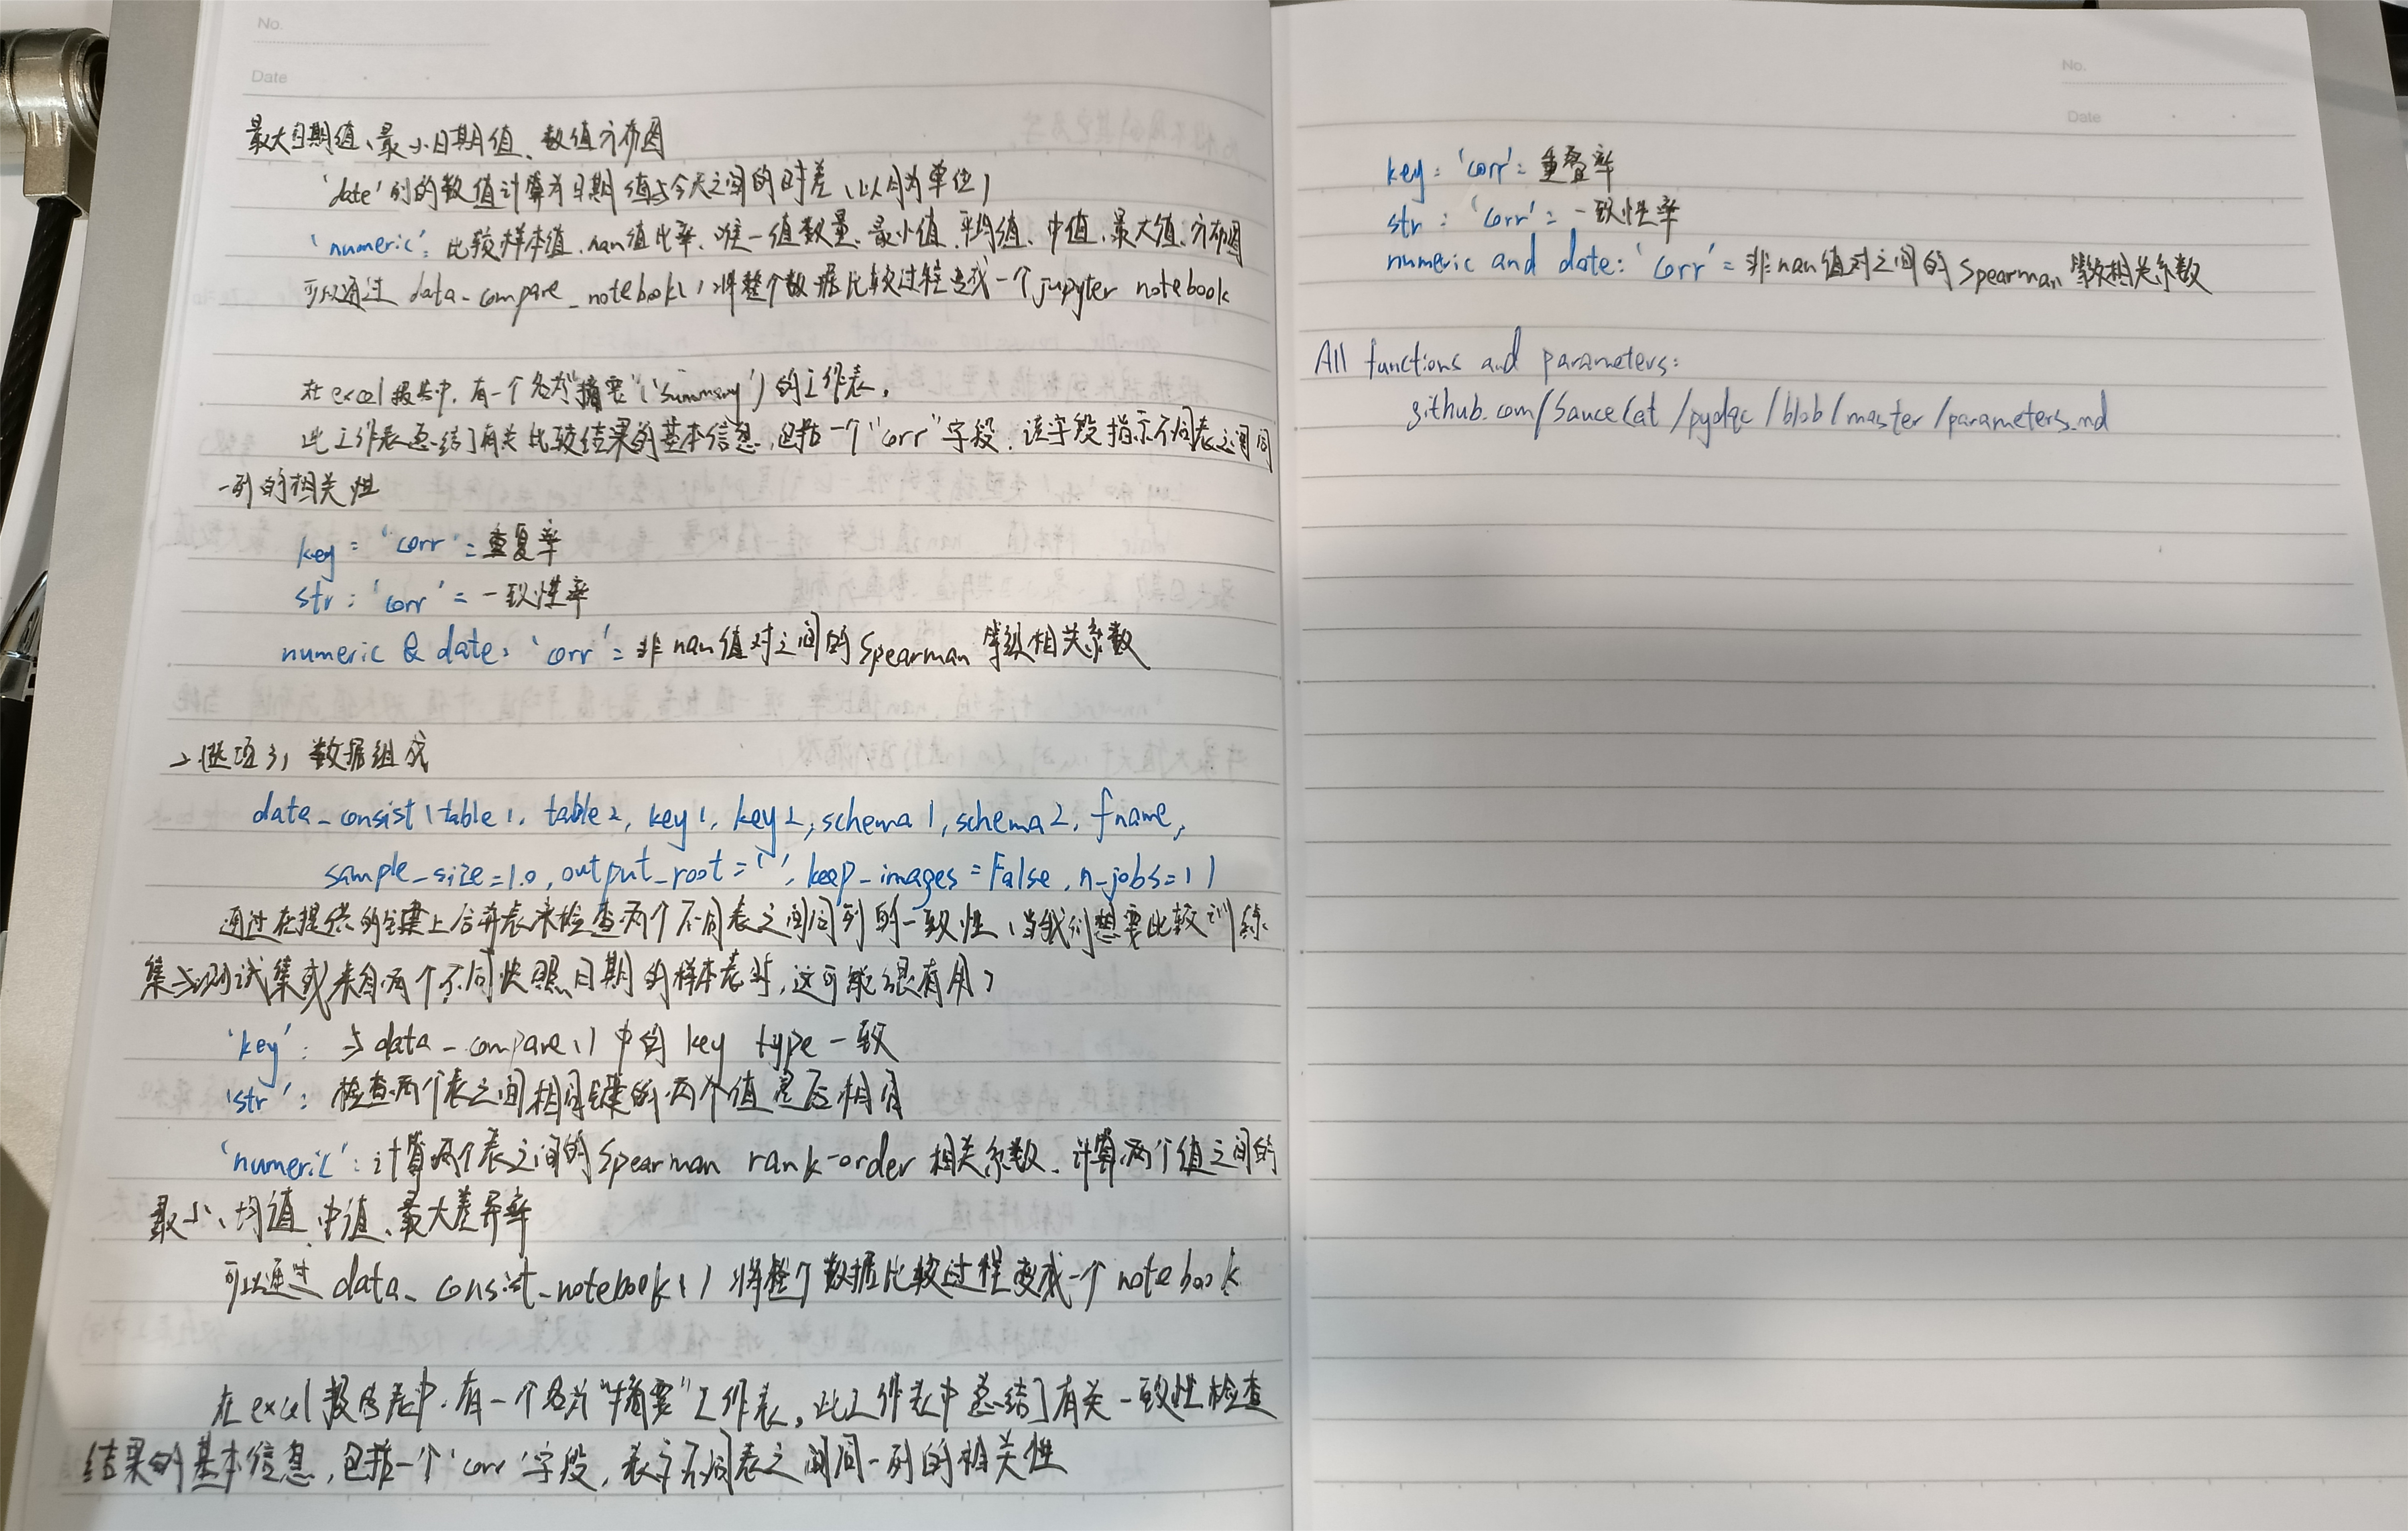 No.
Date
最大日期值、最小日期值、数值分布图
'date' 列的数值计算为日期值与今天之间的时差(以月为单位)
'numeric': 比较样本值、nan值比率、唯一值数量、最小值、平均值、中值、最大值、分布图
可以通过 data_compare_notebook()将整个数据比较过程变成一个jupyter notebook
在excel报告中,有一个名为"摘要"('summary')的工作表。
此工作表总结了有关比较结果的基本信息,包括一个"corr"字段,该字段指示不同表之间同
一列的相关性
key: 'corr': 重复率
str: 'corr' = 一致性率
numeric & date: 'corr' = 非nan值对之间的 Spearman 等级相关系数
>.选项3) 数据组成
data_consist(table1, table2, key1, key2, schema1, schema2, fname,
sample_size=1.0, output_root='', keep_images=False, n_jobs=1)
通过在提供的键上合并表来检查两个不同表之间同列的一致性(当我们想要比较训练
集与测试集或来自两个不同快照日期的样本表时,这可能很有用)
'key': 与data_compare()中的 key type 一致
'str': 检查两个表之间相同键的两个值是否相同
'numeric': 计算两个表之间的 Spearman rank-order 相关系数、计算两个值之间的
最小、均值、中值、最大差异率
可以通过 data_consist_notebook()将整个数据比较过程变成一个 notebook
在excel报告表中,有一个名为"摘要"工作表。此工作表中总结了有关一致性检查
结果的基本信息,包括一个'corr'字段,表示不同表之间同一列的相关性
No.
Date
key: 'corr': 重叠率
str: 'corr' = 一致性率
numeric and date: 'corr' = 非nan值对之间的Spearman 等级相关系数
All functions and parameters:
github.com/SauceCat/pydqc/blob/master/parameters.md